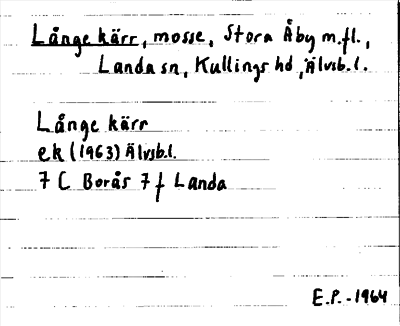 Långe kärr, mosse, Stora Åby m.fl.,
Landa sn, Kullings hd, Älvsb.l.
Långe kärr
ek (1963) Älvsb.l.
7 C Borås 7 f Landa
E.P. - 1964